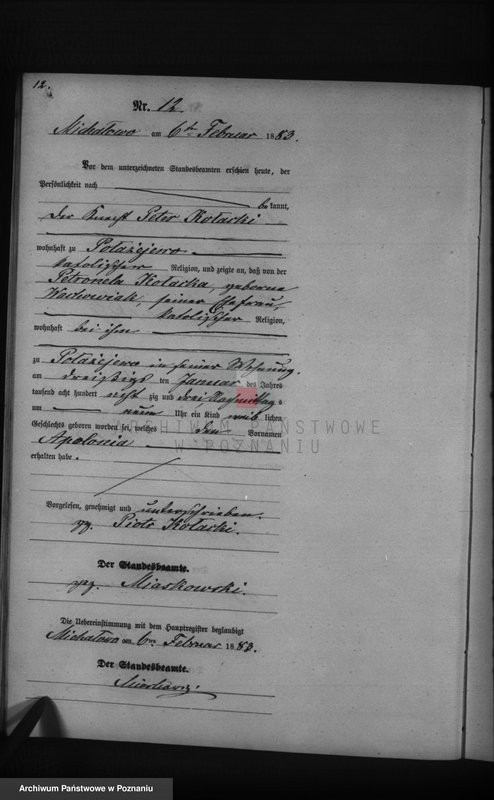 12.
Nr. 12.
Michałowo am 6ten Februar 1883.
Vor dem unterzeichneten Standesbeamten erschien heute, der
Persönlichkeit nach
be kannt,
der Knecht Peter Kołacki
wohnhaft zu Polażejewo
katolischer Religion, und zeigte an, daß von der
Petronela Kołacka, geborene
Wachowiak, seiner Ehefrau,
katolischer Religion,
wohnhaft bei ihm
zu Polażejewo in seiner Wohnung
am dreißigsten ten Januar des Jahres
tausend acht hundert acht zig und drei Nachmittag s
um neun Uhr ein Kind weib lichen
Geschlechts geboren worden sei, welches den Vornamen
Apolonia
erhalten habe.
Vorgelesen, genehmigt und unterschrieben.
gez. Piotr Kołacki.
Der Standesbeamte.
gez. Miaskowski.
Die Uebereinstimmung mit dem Hauptregister beglaubigt
Michałowo am 6ten Februar 1883.
Der Standesbeamte.
ARCHIWUM PAŃSTWOWE
W POZNANIU
Archiwum Państwowe w Poznaniu